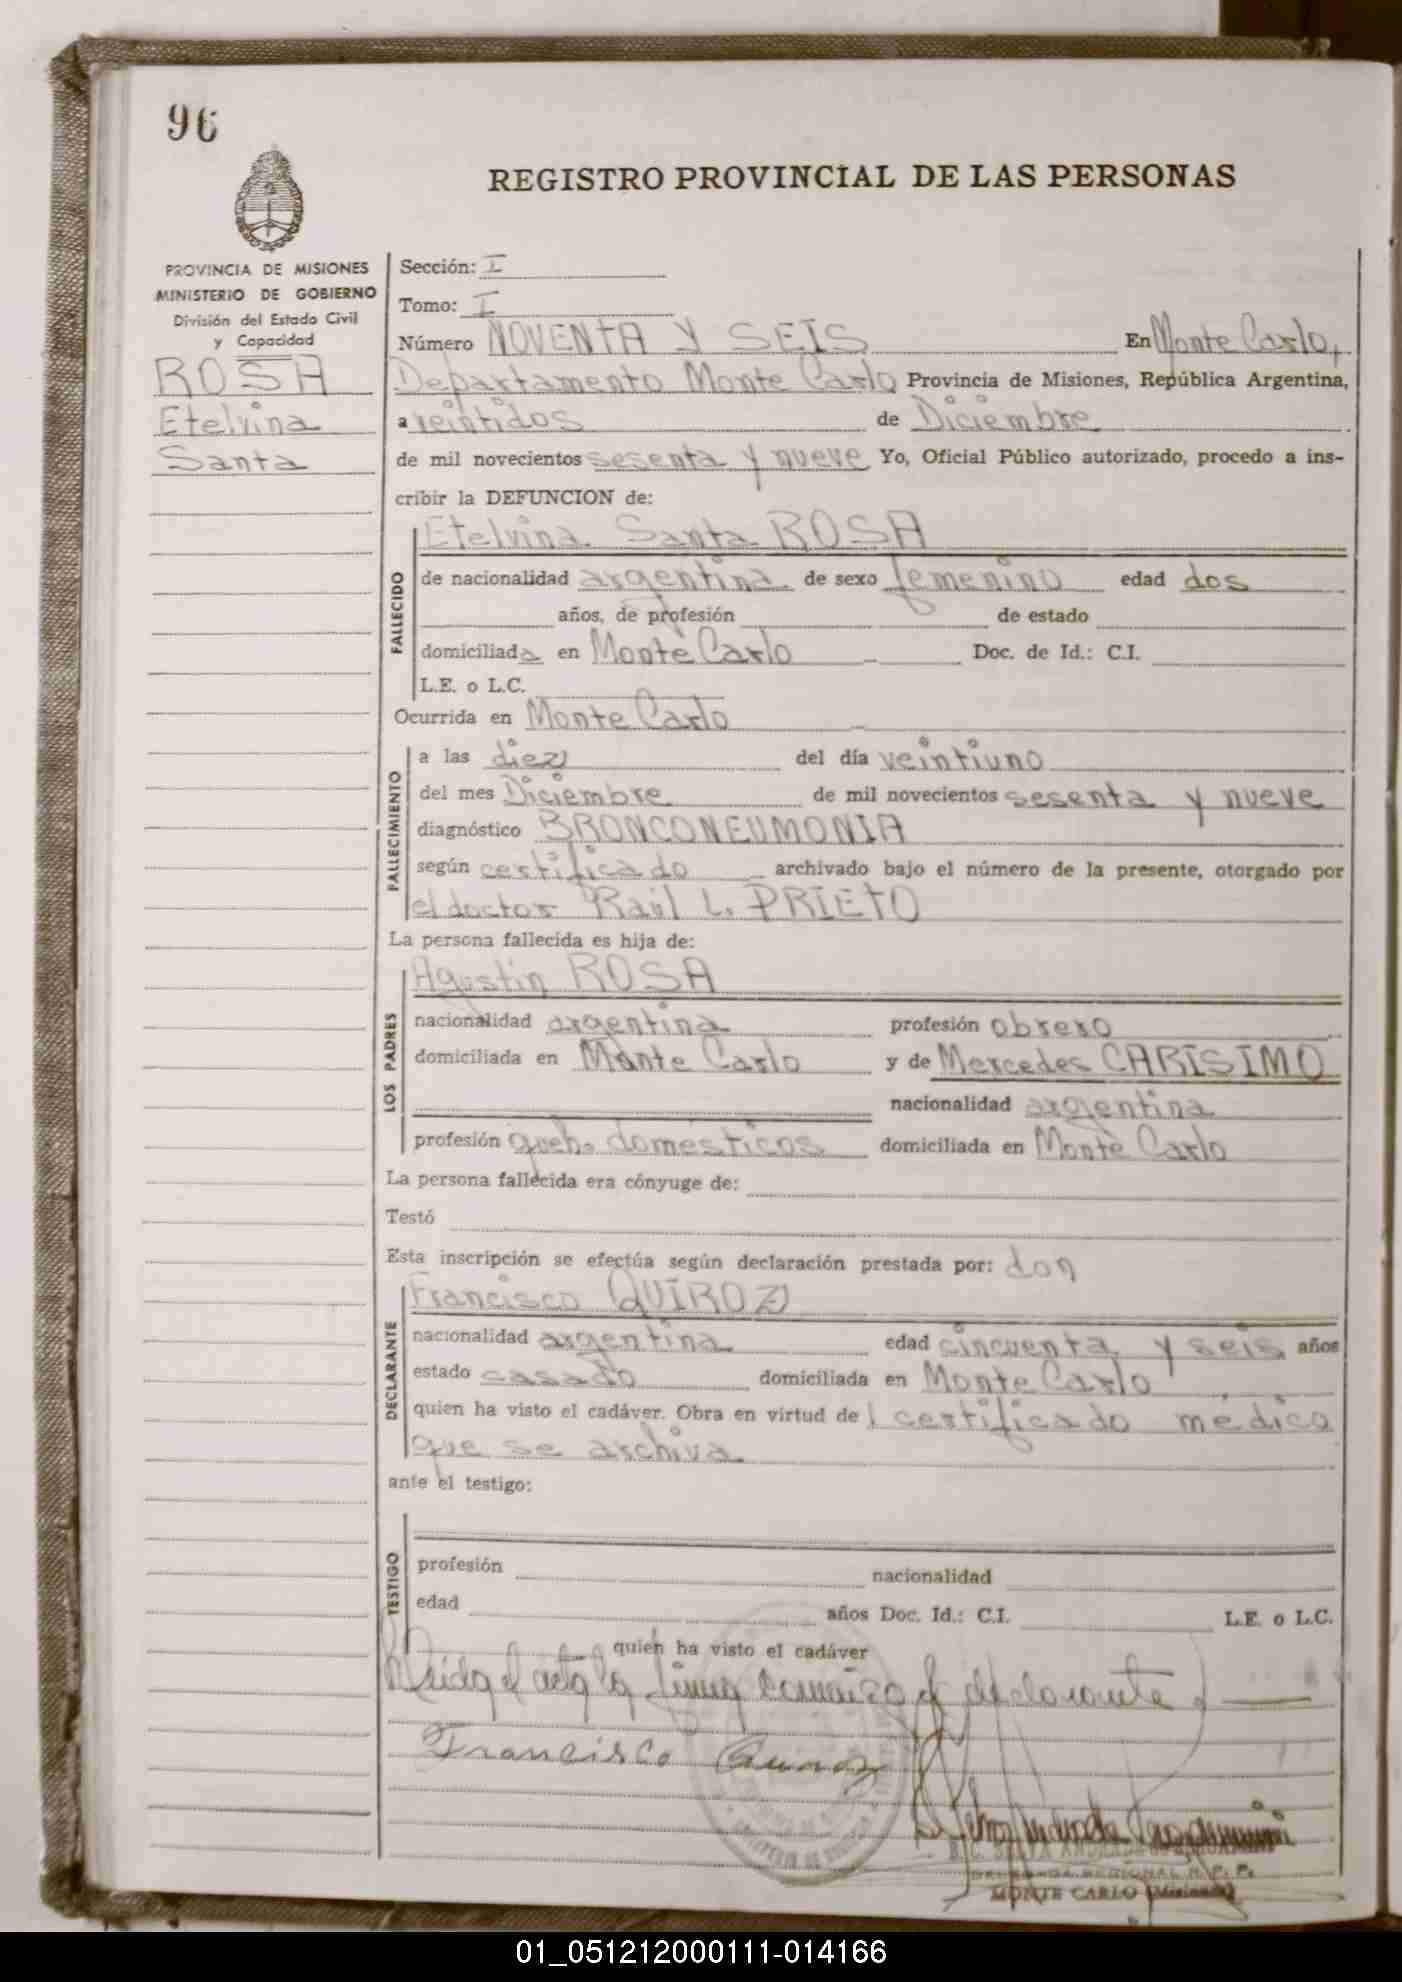 96
REGISTRO PROVINCIAL DE LAS PERSONAS
PROVINCIA DE MISIONES
MINISTERIO DE GOBIERNO
División del Estado Civil
y Capacidad
ROSA
Etelvina
Santa
Sección: I
Tomo: I
Número NOVENTA Y SEIS En Monte Carlo,
Departamento Monte Carlo Provincia de Misiones, República Argentina,
a veintidos de Diciembre
de mil novecientos sesenta y nueve Yo, Oficial Público autorizado, procedo a ins-
cribir la DEFUNCION de:
FALLECIDO
Etelvina Santa ROSA
de nacionalidad argentina de sexo femenino edad dos
años, de profesión de estado
domiciliada en Monte Carlo Doc. de Id.: C.I.
L.E. o L.C.
Ocurrida en Monte Carlo
FALLECIMIENTO
a las diez del día veintiuno
del mes Diciembre de mil novecientos sesenta y nueve
diagnóstico BRONCONEUMONIA
según certificado archivado bajo el número de la presente, otorgado por
el doctor Raúl L. PRIETO
La persona fallecida es hija de:
LOS PADRES
Agustin ROSA
nacionalidad argentina profesión obrero
domiciliada en Monte Carlo y de Mercedes CARISIMO
nacionalidad argentina
profesión queh. domésticos domiciliada en Monte Carlo
La persona fallecida era cónyuge de:
Testó
Esta inscripción se efectúa según declaración prestada por: don
DECLARANTE
Francisco QUIROZ
nacionalidad argentina edad cincuenta y seis años
estado casado domiciliada en Monte Carlo
quien ha visto el cadáver. Obra en virtud del certificado médico
que se archiva
ante el testigo:
TESTIGO
profesión nacionalidad
edad años Doc. Id.: C.I. L.E. o L.C.
quien ha visto el cadáver
el acta la firma conmigo el declarante
Francisco Quiroz
DELEGADA REGIONAL R. P. P.
MONTE CARLO (Misiones)
01_051212000111-014166